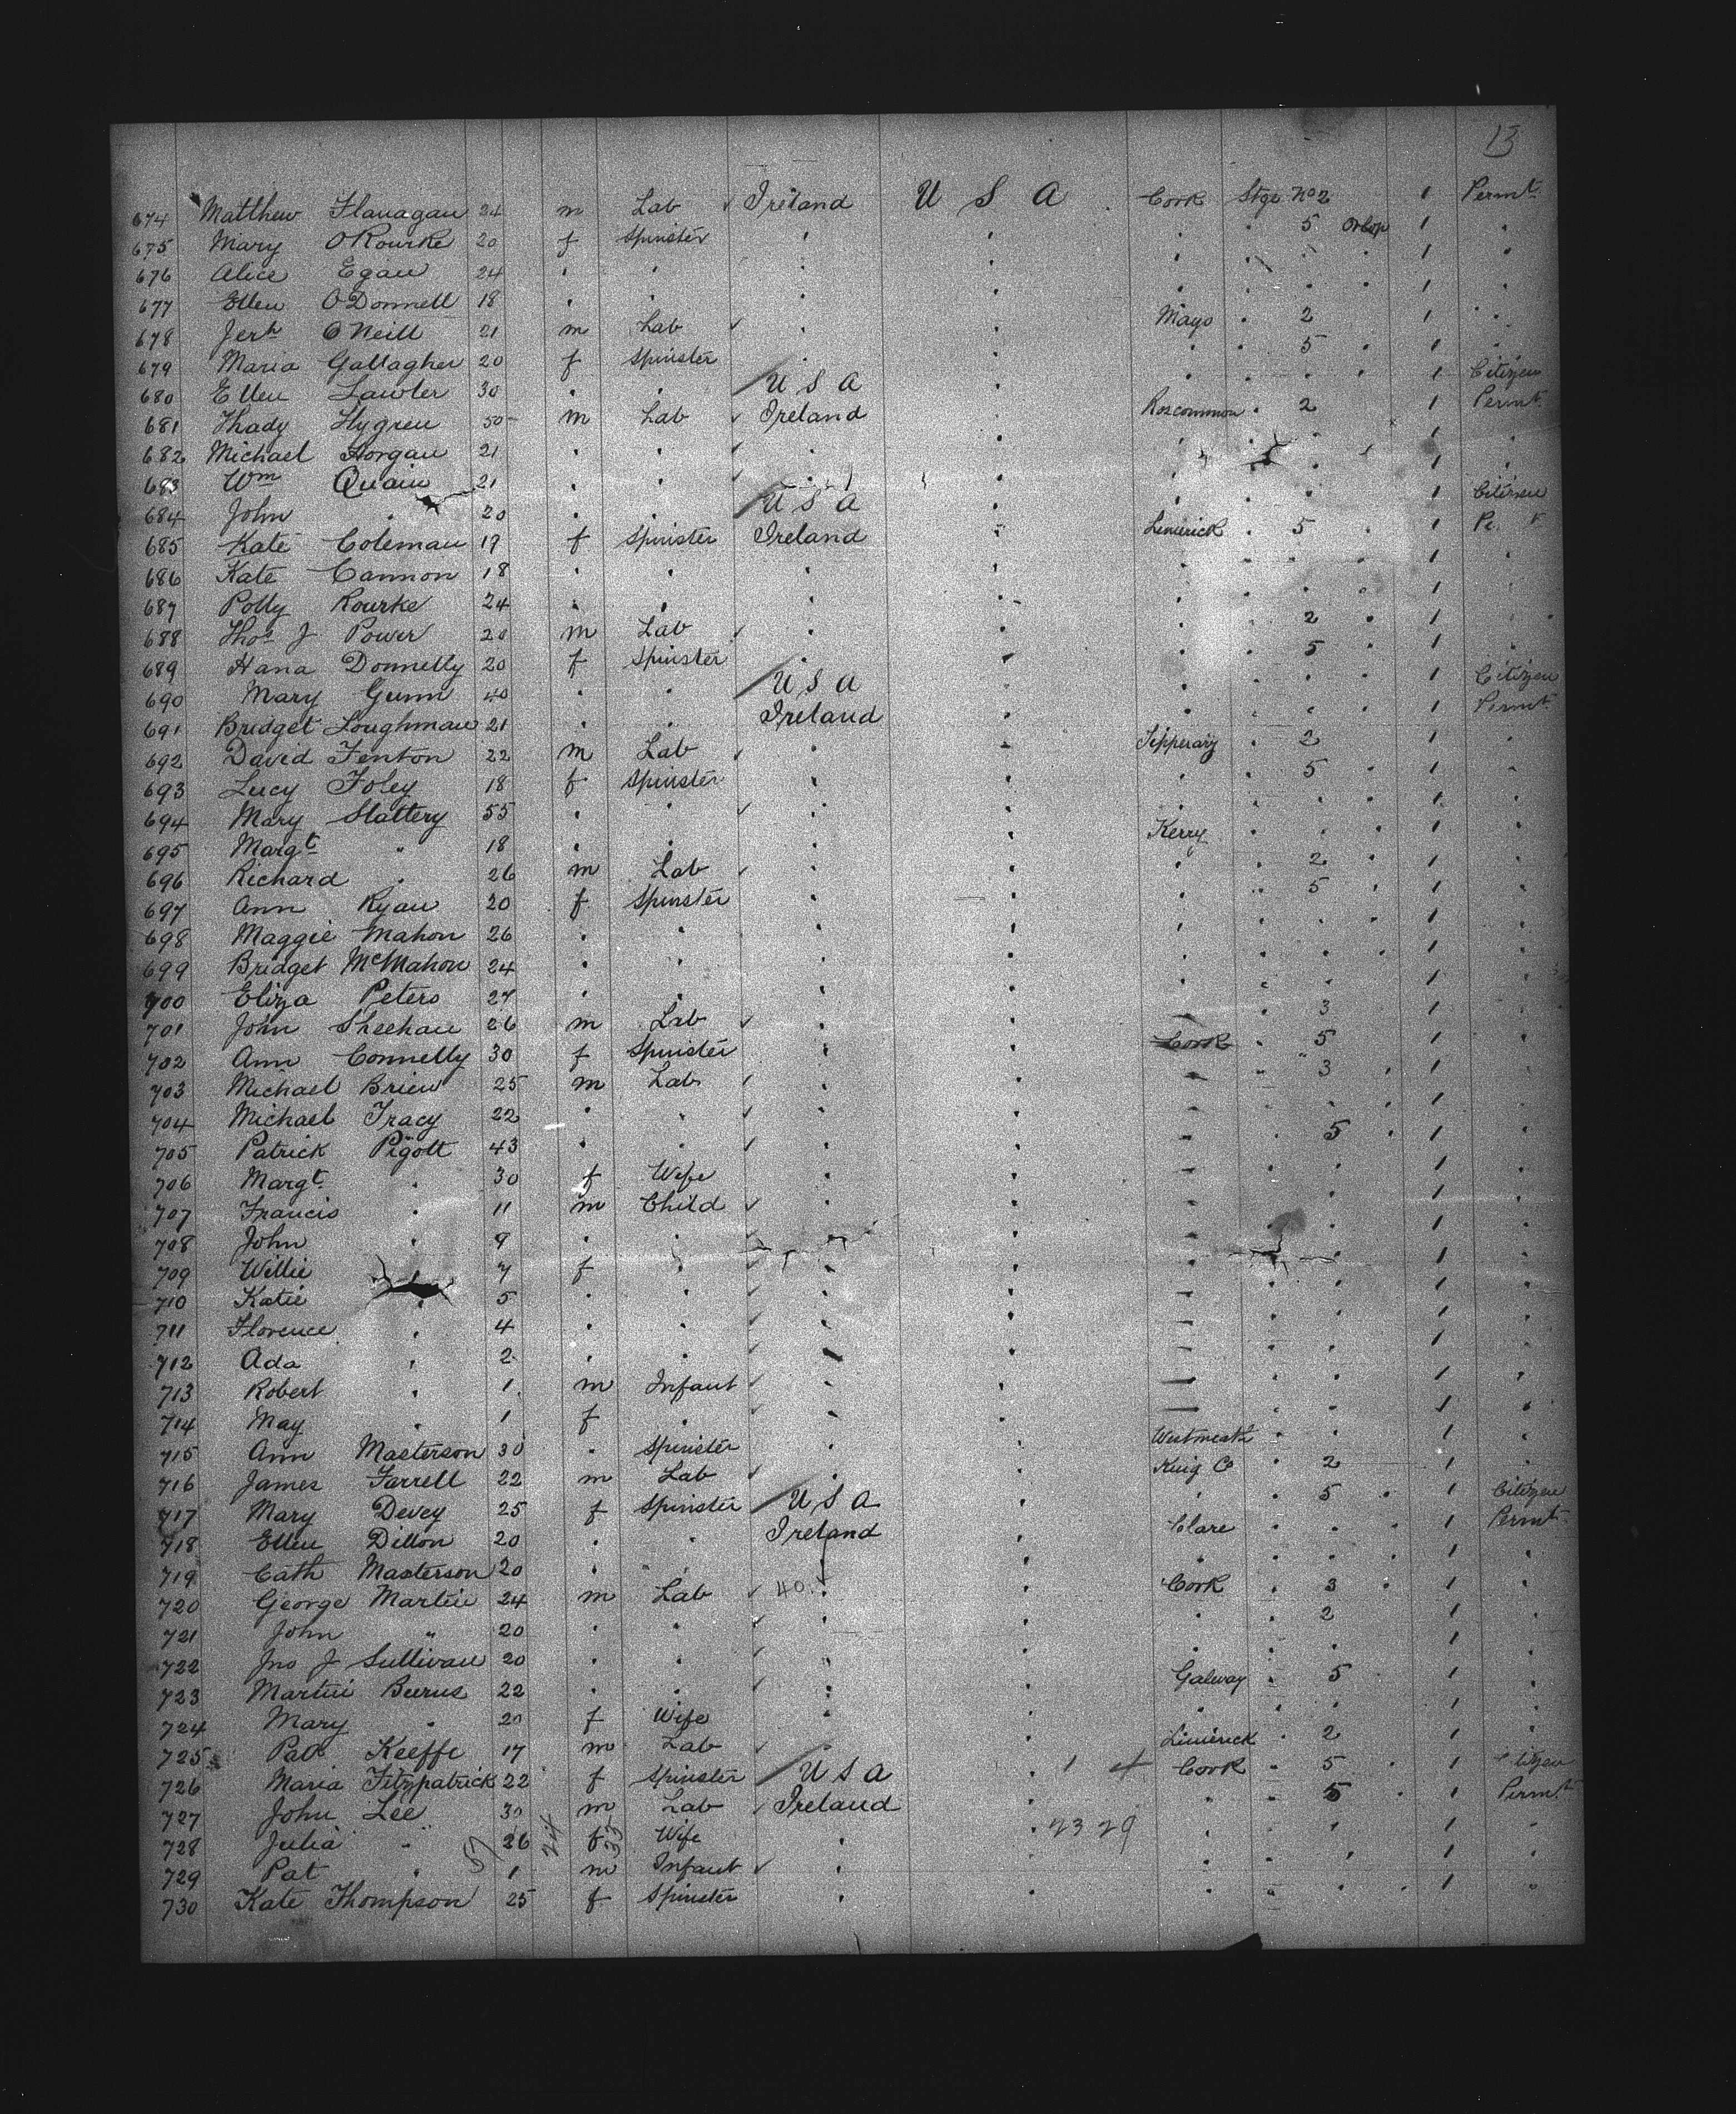 13
674 Matthew Flanagan 24 m Lab ✓ Ireland U S A Cork Stge No 2 1 Permt
675 Mary O'Rourke 20 f Spinster " " " " 5 Orlop 1 "
676 Alice Egan 24 " " " " " " " " 1 "
677 Ellen O'Donnell 18 " " " " " " " " 1 "
678 Jerh O'Neill 21 m Lab ✓ " " Mayo " 2 1 "
679 Maria Gallagher 20 f Spinster " " " " 5 " 1 "
680 Ellen Lawler 30 " " U S A " " " " " 1 Citizen
681 Thady Hygreu 50 m Lab ✓ Ireland " Roscommon " 2 1 Permt
682 Michael Horgan 21 " " ✓ " " " " " 1 "
683 Wm Quain 21 " " ✓ " " " " " 1 "
684 John " 20 " " U S A " " " " 1 Citizen
685 Kate Coleman 17 f Spinster Ireland " Limerick " 5 " 1
686 Kate Cannon 18 " " " " " " " " 1 "
687 Polly Rourke 24 " " " " " " " " 1 "
688 Thos J Power 20 m Lab ✓ " " " " 2 " 1 "
689 Hana Donnelly 20 f Spinster " " " " 5 " 1 "
690 Mary Gunn 40 " " U S A " " " " " 1 Citizen
691 Bridget Loughman 21 " " Ireland " " " " " 1 Permt
692 David Fenton 22 m Lab ✓ " " Tipperary " 2 " 1 "
693 Lucy Foley 18 f Spinster " " " " 5 " 1 "
694 Mary Slattery 55 " " ✓ " " " " " " 1 "
695 Margt " 18 " " " " Kerry " " " 1 "
696 Richard " 26 m Lab ✓ " " " " 2 " 1 "
697 Ann Ryan 20 f Spinster " " " " 5 " 1 "
698 Maggie Mahon 26 " " " " " " " " 1 "
699 Bridget McMahon 24 " " " " " " " " 1 "
700 Eliza Peters 27 " " " " " " " " 1 "
701 John Sheehan 26 m Lab ✓ " " " " 3 1 "
702 Ann Connelly 30 f Spinster " " Cork " 5 1 "
703 Michael Brien 25 m Lab ✓ " " " " 3 " 1 "
704 Michael Tracy 22 " " ✓ " " " " " " 1 "
705 Patrick Pigott 43 " " ✓ " " " " 5 " 1 "
706 Margt " 30 f Wife " " " " " 1 "
707 Francis " 11 m Child ✓ " " " " " 1 "
708 John " 9 " " ✓ " " " " " 1 "
709 Willie " 7 f " ✓ " " " " " 1 "
710 Katie " 5 " " ✓ " " " " " 1 "
711 Florence " 4 " " ✓ " " " " " 1 "
712 Ada " 2 " " ✓ " " " " " 1 "
713 Robert " 1 m Infant ✓ " " " " " 1 "
714 May " 1 f " ✓ " " " " " 1 "
715 Ann Masterson 30 " Spinster " " Westmeath " " 1 "
716 James Farrell 22 m Lab ✓ " " King Co " 2 1 "
717 Mary Devey 25 f Spinster U S A " " " 5 " 1 Citizen
718 Ellen Dillon 20 " " Ireland " Clare " " " 1 Permt
719 Cath Masterson 20 " " " " " " " " 1 "
720 George Martin 24 m Lab ✓ 40 " " Cork " 3 " 1 "
721 John " 20 " " ✓ " " " " 2 1 "
722 Jno J Sullivan 20 " " ✓ " " " " " 1 "
723 Martin Beirns 22 " " ✓ " " Galway " 5 " 1 "
724 Mary " 20 f Wife " " " " " 1 "
725 Pat Keeffe 17 m Lab ✓ " " Limerick " 2 1 "
726 Maria Fitzpatrick 22 f Spinster U S A " 1 4 Cork " 5 " 1 Citizen
727 John Lee 30 m Lab ✓ Ireland " " " 5 " 1 Permt
728 Julia " 26 f Wife " " 23 29 " " " 1 "
729 Pat " 1 m Infant ✓ " " " " " " 1 "
730 Kate Thompson 25 f Spinster " " " " " " 1 "
57 24 33